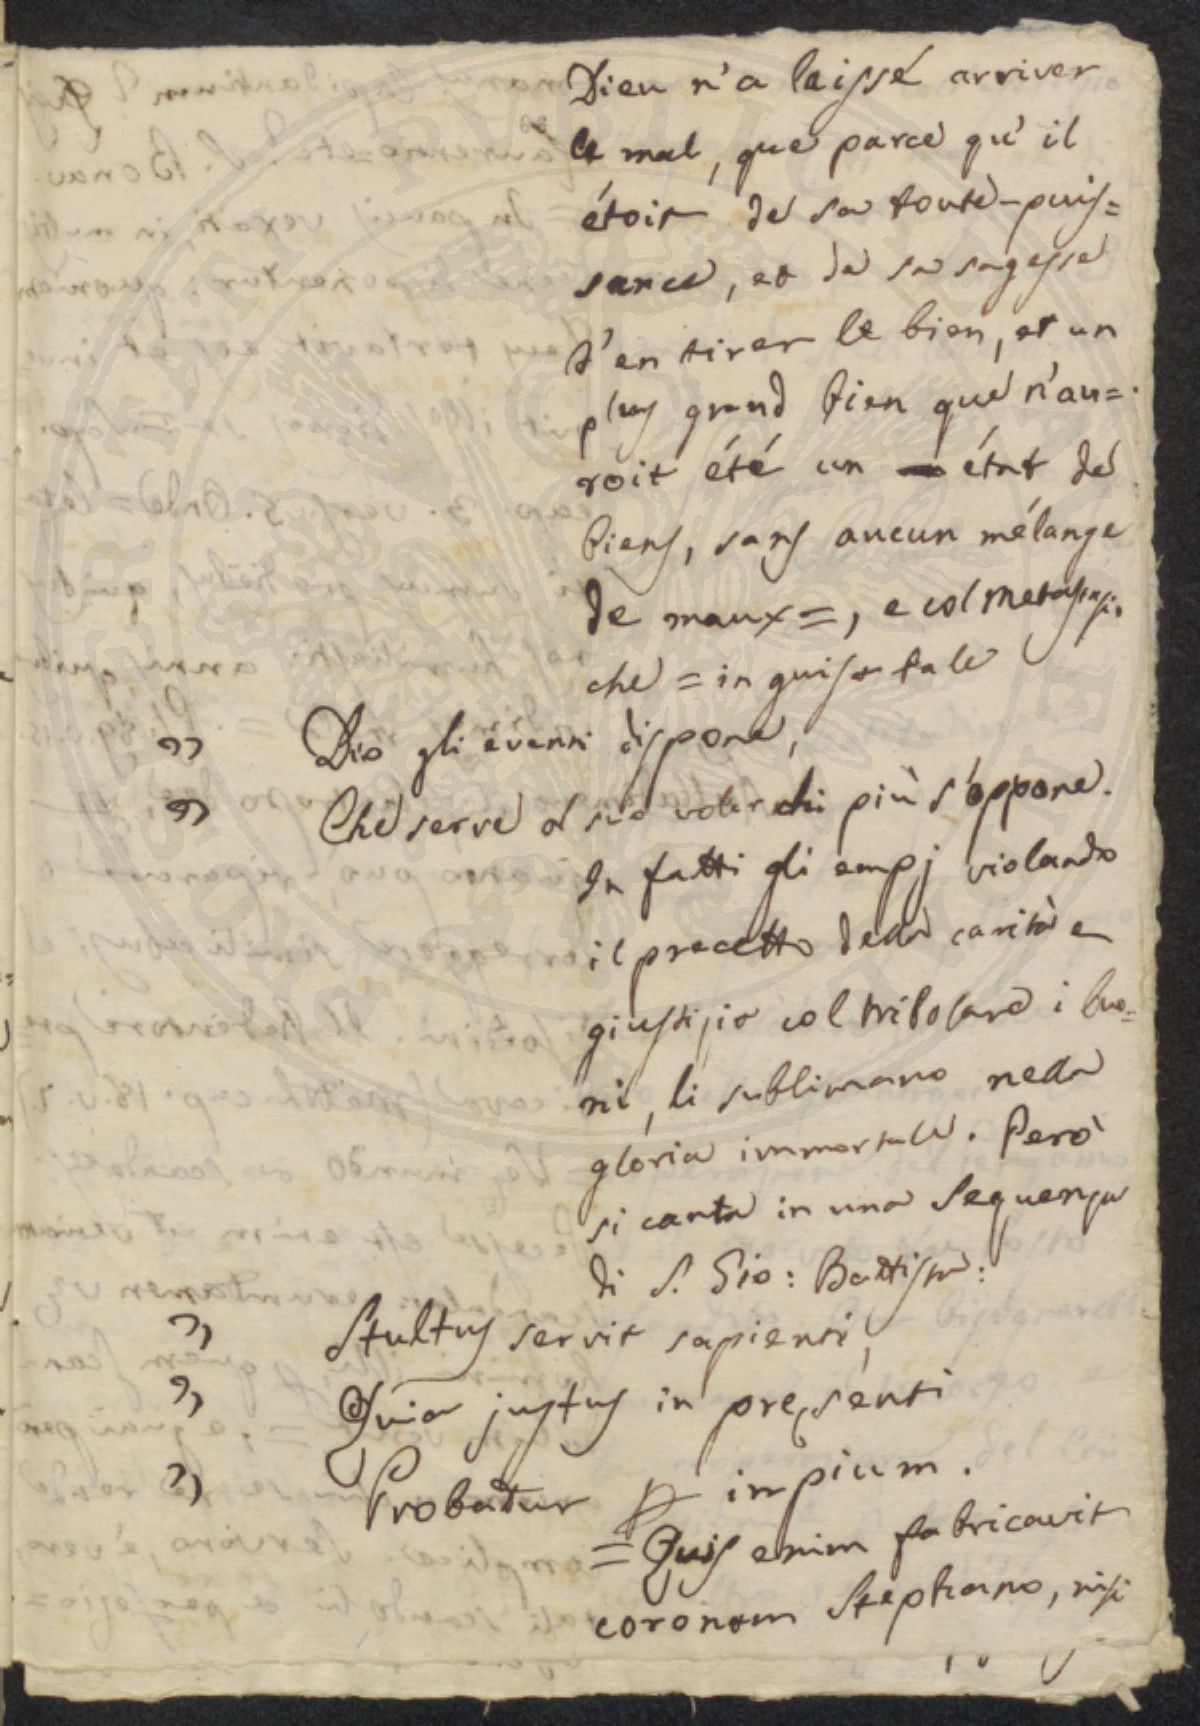 Dieu n'a laissé arriver
le mal, que parce qu'il
étoit de sa toute-puis=
sance, et de sa sagesse
d'en tirer le bien, et un
plus grand bien que n'au=
roit été un état de
biens, sans aucun mélange
de maux=, e col Metastasi,
che = in guisa tale
" Dio gli eventi dispone,
" Che serve al suo voler chi più s'oppone.
In fatti gli empj violando
il precetto della carità e
giustizia col tribolare i buo=
ni, li sublimano nella
gloria immortale. Però
si canta in una Sequenza
di S. Gio: Battista:
" Stultus servit sapienti,
" Quia justus in presenti
" Probatur ꝑ impium.
= Quis enim fabricavit
coronam Stephano, nisi